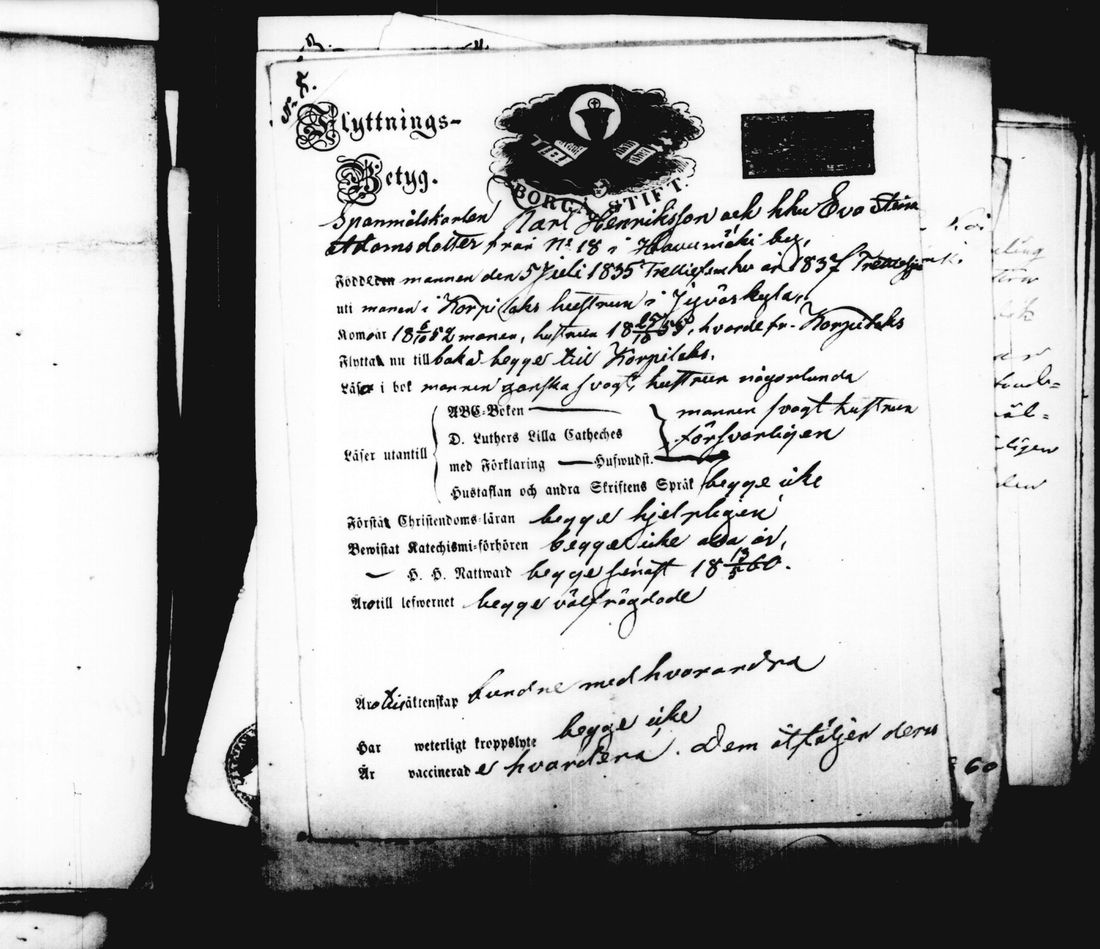 Flyttnings-
Betyg.
BORGÅ STIFT.
Spanmålskarlen Karl Henriksson och hhu Eva Stina
Adamsdotter från № 18 i Havumäki by,
Född mannen den 5 Juli 1835 Trettiofem hu år 1837
uti manen i Korpilaks hustrun i Jyväskyla,
Kom år 18 52 manen, hustrun 18 55, hvarde fr. Korpilaks
Flytta nu till baka begge till Korpilaks.
Läser i bok mannen ganska svagt, hustrun någorlunda
ABC-Boken mannen svagt hustrun
D. Luthers Lilla Catheches försvarligen
Läser utantill
med Förklaring Hufwudst.
Hustaflan och andra Skriftens Språk begge icke
Förstå Christendoms-läran begge hjelpligen
Bewistat Katechismi-förhören begge icke alla år,
H. H. Nattward begge senast 18 13/5 60.
Äro till lefwernet begge välfrägdade
Äro till ättenskap bundne med hvarandra
Har weterligt kroppslyte begge icke
Är vaccinerade hvardera. Dem åtföljer deras
60